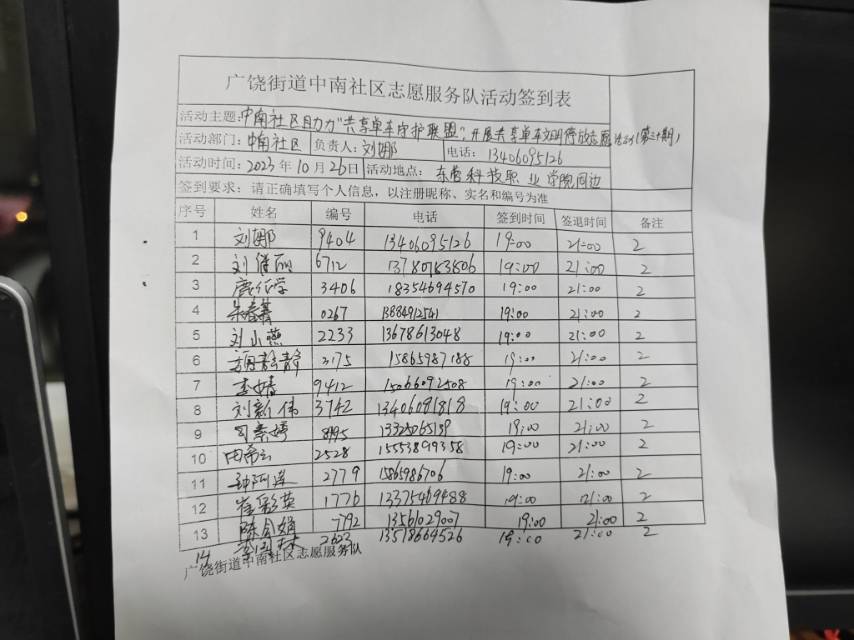 广饶街道中南社区志愿服务队活动签到表
活动主题:中南社区助力"共享单车守护联盟",开展共享单车文明停放志愿活动(第三十期)
活动部门:中南社区 负责人:刘娜 电话:13406095126
活动时间:2023年10月26日 活动地点:东营科技职业学院周边
签到要求:请正确填写个人信息,以注册昵称、实名和编号为准
序号 姓名 编号 电话 签到时间 签退时间 备注
1 刘娜 9404 13406095126 19:00 21:00 2
2 刘 6712 13780783806 19:00 21:00 2
3 3406 18354694570 19:00 21:00 2
4 0267 13884912541 19:00 21:00 2
5 刘小燕 2233 13678613048 19:00 21:00 2
6 3175 15865987188 19:00 21:00 2
7 李婧 9412 15066092508 19:00 21:00 2
8 刘新伟 3742 13406081818 19:00 21:00 2
9 19:00 21:00 2
10 2528 15553899358 19:00 21:00 2
11 2779 19:00 21:00 2
12 崔彩英 1776 13375469488 19:00 21:00 2
13 陈 7792 19:00 21:00 2
14 2623 13518669526 19:00 21:00 2
广饶街道中南社区志愿服务队